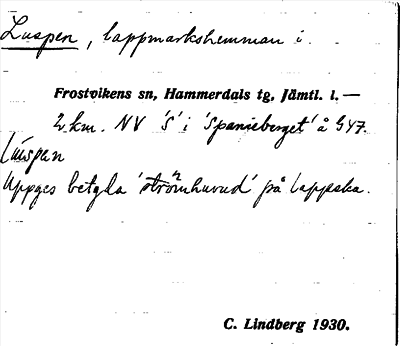 Luspen, lappmarkshemman i.
Frostvikens sn, Hammerdals tg, Jämtl. l. —
2 km. NV 'S' i 'Spanieberget' å G47.
Lúspɛn
Uppges betyda 'strömhuvud' på lappska.
C. Lindberg 1930.